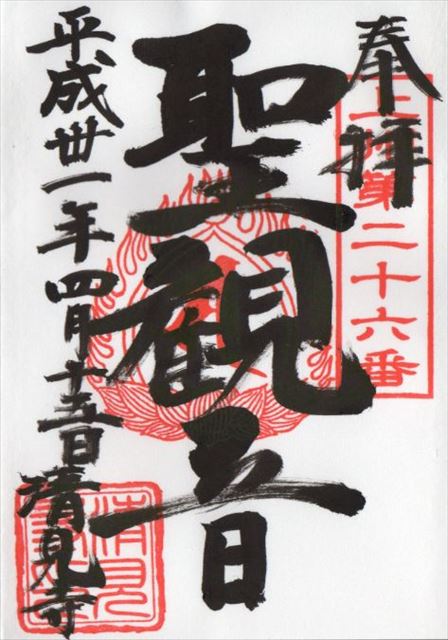 奉拝
第二十六番
聖観音
平成卅一年四月十五日
清見寺
清見